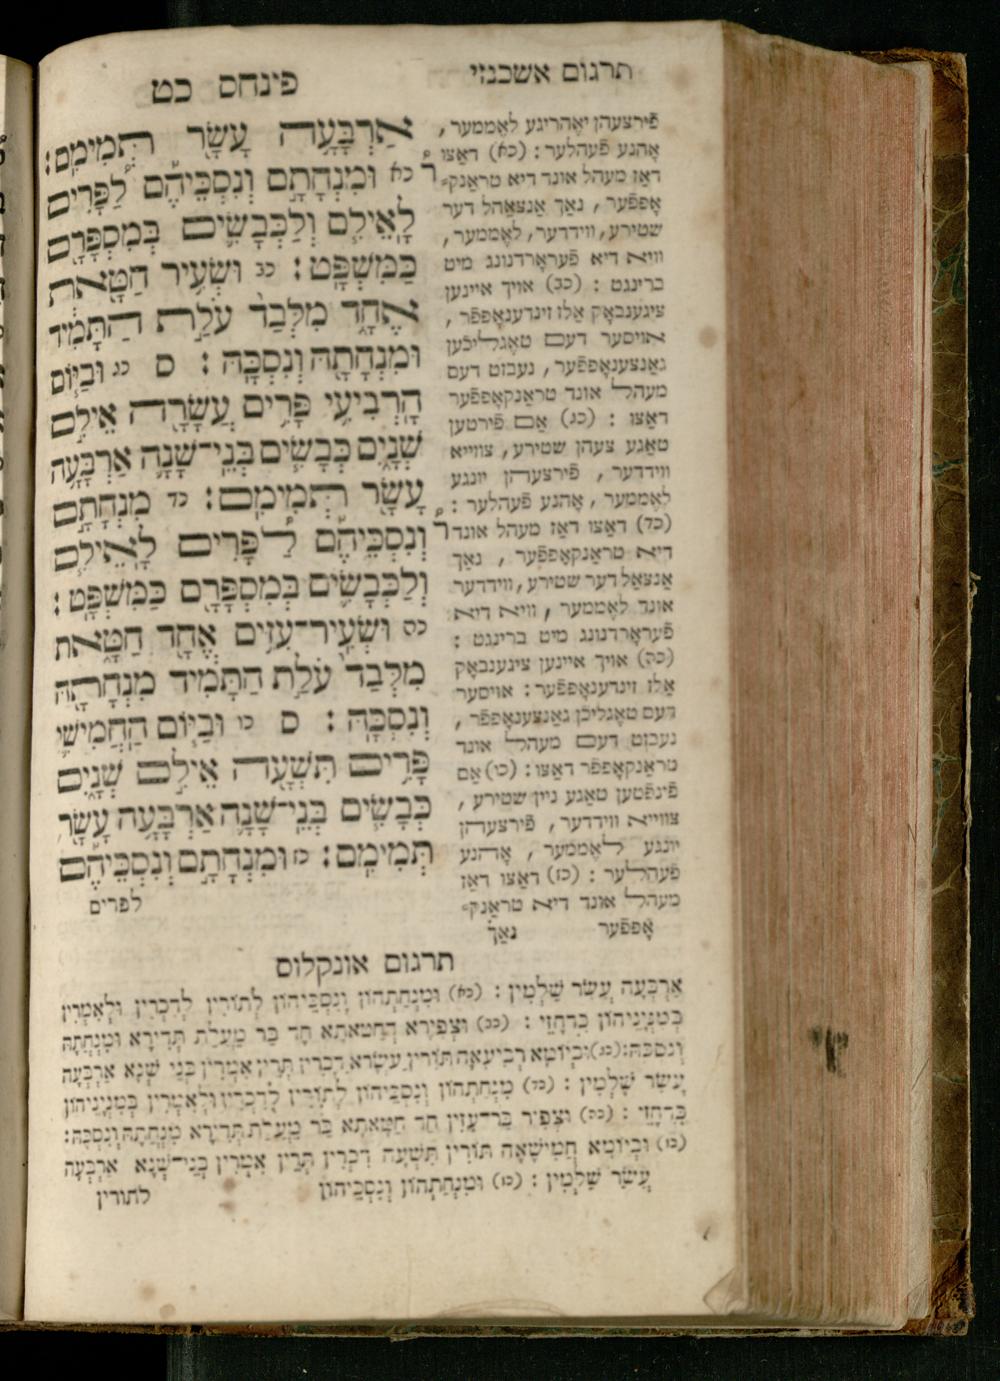 תרגום אשכנזי
פינחס כט
אַרְבָּעָה עָשָׂר תְּמִימִם׃
כא וּמִנְחָתָם וְנִסְכֵּיהֶם לַפָּרִים
לָאֵילִם וְלַכְּבָשִׂים בְּמִסְפָּרָם
כַּמִּשְׁפָּט׃ כב וּשְׂעִיר חַטָּאת
אֶחָד מִלְּבַד עֹלַת הַתָּמִיד
וּמִנְחָתָהּ וְנִסְכָּהּ׃ ס כג וּבַיּוֹם
הָרְבִיעִי פָּרִים עֲשָׂרָה אֵילִם
שְׁנָיִם כְּבָשִׂים בְּנֵי־שָׁנָה אַרְבָּעָה
עָשָׂר תְּמִימִם׃ כד מִנְחָתָם
וְנִסְכֵּיהֶם לַפָּרִים לָאֵילִם
וְלַכְּבָשִׂים בְּמִסְפָּרָם כַּמִּשְׁפָּט׃
כה וּשְׂעִיר־עִזִּים אֶחָד חַטָּאת
מִלְּבַד עֹלַת הַתָּמִיד מִנְחָתָהּ
וְנִסְכָּהּ׃ ס כו וּבַיּוֹם הַחֲמִישִׁי
פָּרִים תִּשְׁעָה אֵילִם שְׁנָיִם
כְּבָשִׂים בְּנֵי־שָׁנָה אַרְבָּעָה עָשָׂר
תְּמִימִם׃ כז וּמִנְחָתָם וְנִסְכֵּיהֶם
לפרים
פֿירצעהן יאָהריגע לאֶממער,
אָהנע פֿעהלער: (כא) דאַצו
דאַז מעהל אונד דיא טראַנק־
אָפּפֿער, נאַך אַנצאַהל דער
שטירע, ווידדער, לאֶממער,
וויא דיא פֿעראָרדנונג מיט
ברינגט: (כב) אויך איינען
ציגענבאָק אַלז זינדענאָפּפֿר,
אויסער דעם טאֶגליכֿען
גאַנצענאָפּפֿער, נעבזט דעם
מעהל אונד טראַנקאָפּפֿער
דאַצו: (כג) אַם פֿירטען
טאַגע צעהן שטירע, צווייא
ווידדער, פֿירצעהן יונגע
לאֶממער, אָהנע פֿעהלער:
(כד) דאַצו דאַז מעהל אונד
דיא טראַנקאָפּפֿער, נאַך
אַנצאַל דער שטירע, ווידדער
אונד לאֶממער, וויא דיא
פֿעראָרדנונג מיט ברינגט:
(כה) אויך איינען ציגענבאָק
אַלז זינדענאָפּפֿער: אויסער
דעם טאֶגליכֿן גאַנצענאָפּפֿר,
נעבזט דעם מעהל אונד
טראַנקאָפּפֿר דאַצו: (כו) אַם
פֿינפֿטען טאַגע ניין שטירע,
צווייא ווידדער, פֿירצעהן
יונגע לאֶממער, אָהנע
פֿעהלער: (כז) דאַצו דאַז
מעהל אונד דיא טראַנק־
אָפּפֿער נאַך
תרגום אונקלוס
אַרְבְּעָה עֲשַׂר שַׁלְמִין: (כא) וּמִנְחַתְהוֹן וְנִסְכֵּיהוֹן לְתוֹרִין לְדִכְרִין וּלְאִמְּרִין
בְּמִנְיָנֵיהוֹן כִּדְחָזֵי: (כב) וּצְפִירָא דְחַטָּאתָא חַד בַּר מֵעֲלַת תְּדִירָא וּמִנְחָתַהּ
וְנִסְכַּהּ: (כג) וּבְיוֹמָא רְבִיעָאָה תּוֹרִין עַשְׂרָא דִכְרִין תְּרֵין אִמְּרִין בְּנֵי שְׁנָא אַרְבְּעָה
עֲשַׂר שַׁלְמִין: (כד) מִנְחַתְהוֹן וְנִסְכֵּיהוֹן לְתוֹרִין לְדִכְרִין וּלְאִמְּרִין בְּמִנְיָנֵיהוֹן
כִּדְחָזֵי: (כה) וּצְפִיר בַּר־עִזִּין חַד חַטָּאתָא בַּר מֵעֲלַת תְּדִירָא מִנְחָתַהּ וְנִסְכַּהּ:
(כו) וּבְיוֹמָא חֲמִישָׁאָה תּוֹרִין תִּשְׁעָה דִכְרִין תְּרֵין אִמְּרִין בְּנֵי־שְׁנָא אַרְבְּעָה
עֲשַׂר שַׁלְמִין: (כז) וּמִנְחַתְהוֹן וְנִסְכֵּיהוֹן
לתורין